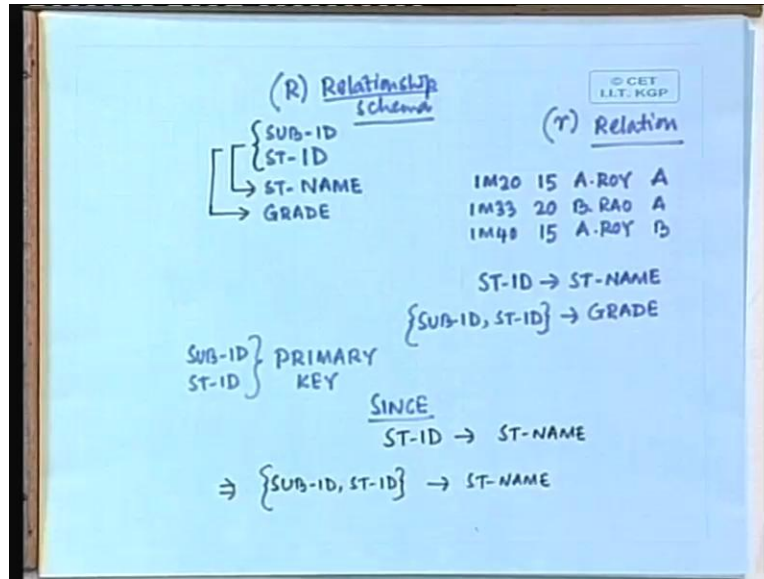 (R) Relationship
Schema
© CET
I.I.T. KGP
SUB-ID
ST-ID
ST-NAME
GRADE
(r) Relation
IM20 15 A.ROY A
IM33 20 B.RAO A
IM40 15 A.ROY B
ST-ID → ST-NAME
{SUB-ID, ST-ID} → GRADE
SUB-ID
ST-ID
} PRIMARY
KEY
SINCE
ST-ID → ST-NAME
⇒ {SUB-ID, ST-ID} → ST-NAME